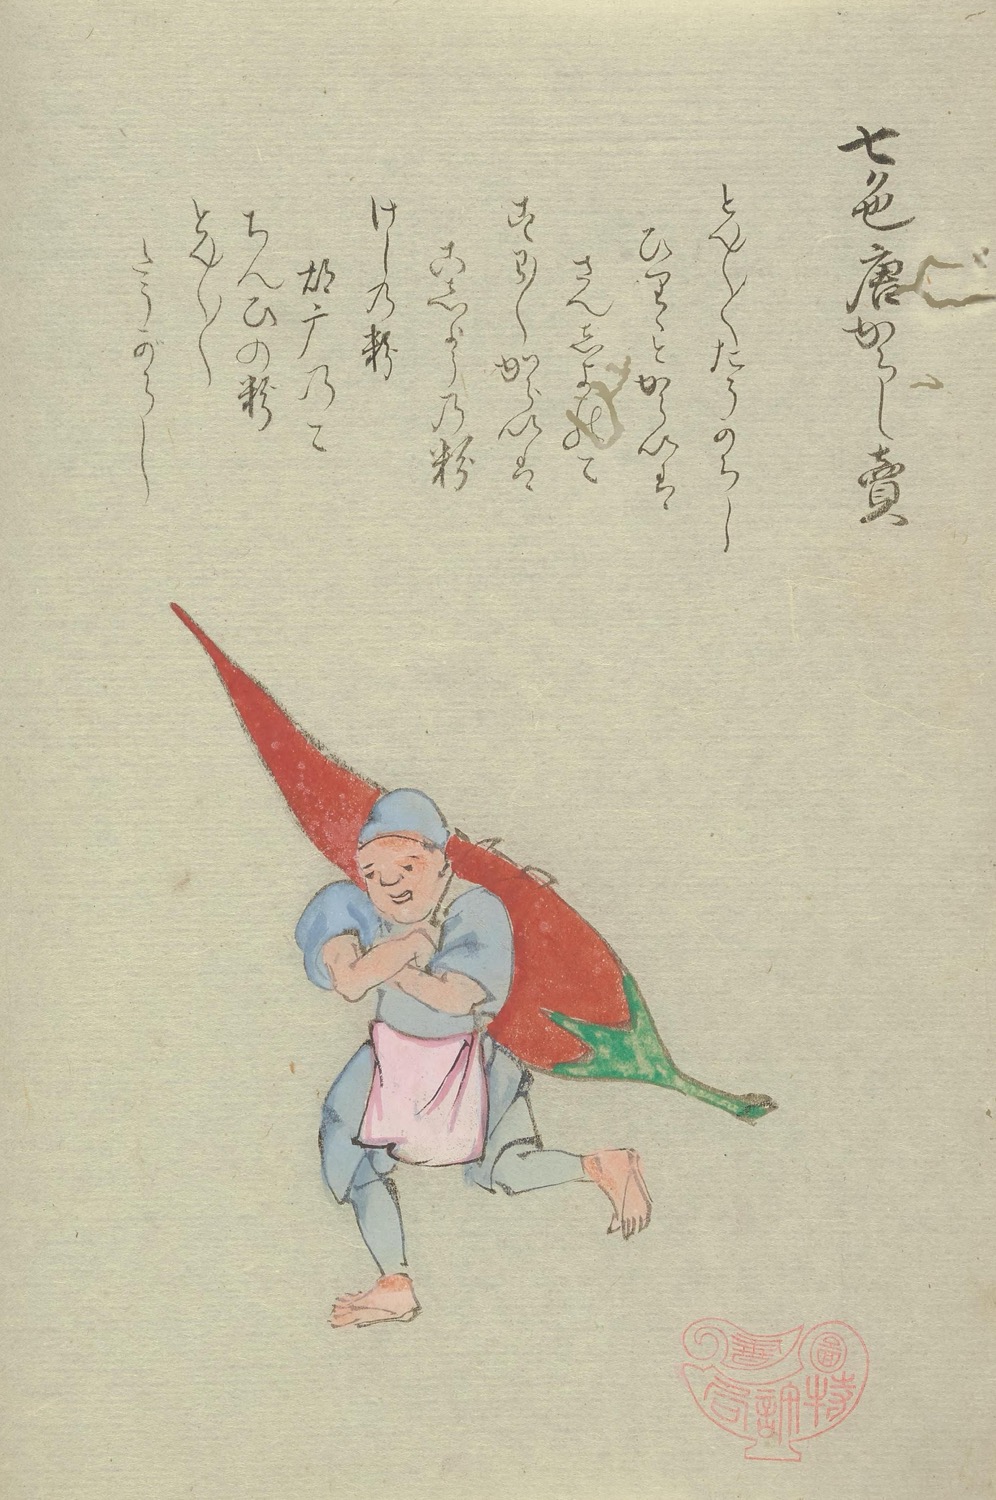 七色唐からし賣
とん〳〵たうからし
ひりりとからいは
さんしよのこ
すハ〳〵からいは
こしようの粉
けしの粉
胡广のこ
ちんひの粉
とん〳〵
たうがらし